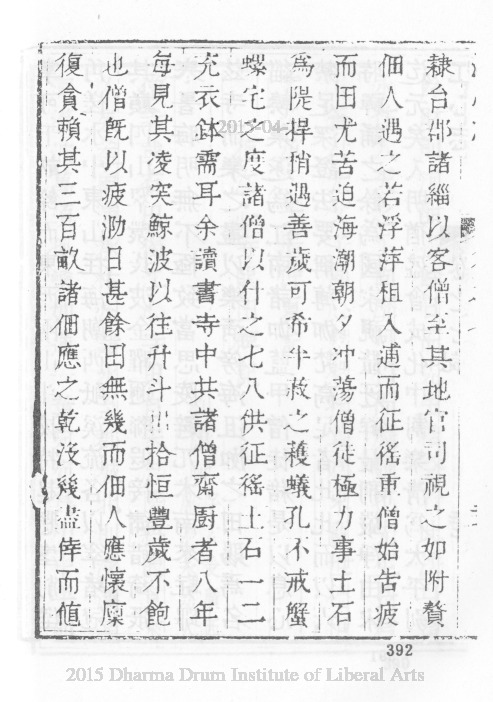 隸台郡諸緇以客僧至其地官司視之如附贅
佃人遇之若浮萍租入逋而征徭重僧始告疲
而田尤苦迫海潮朝夕冲蕩僧徒極力事土石
爲隄捍稍遇善歲可希半菽之穫蟻孔不戒蟹
螺宅之度諸僧以什之七八供征徭土石一二
充衣鉢需耳余讀書寺中共諸僧齋廚者八年
每見其凌突鯨波以往升斗 拾恒豐歲不飽
也僧旣以疲泐日甚餘田無幾而佃人應懷廩
復貪賴其三百畝諸佃應之乾沒幾盡倖而值
2015-04-
392
2015 Dharma Drum Institute of Liberal Arts